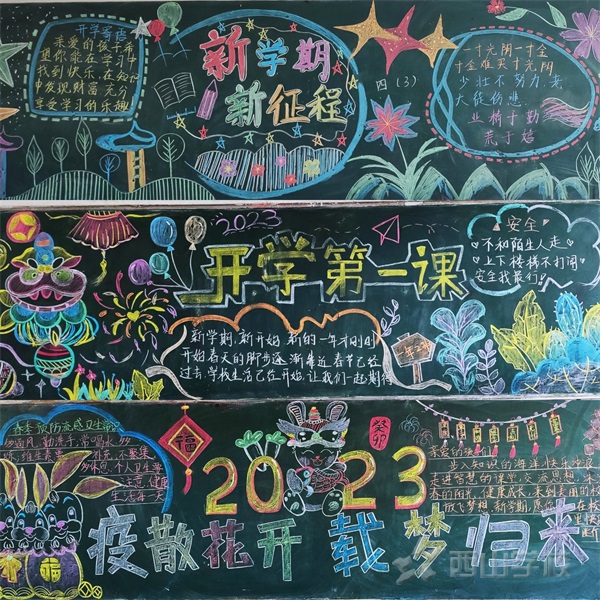 开学寄语
亲爱的孩子希
望你能在学习中
找到快乐,在知识
中发现财富,充分
享受学习的乐趣!
新学期
新征程
四(3)
一寸光阴一寸金
寸金难买寸光阴
少壮不努力,老
大徒伤悲
业精于勤
荒于嬉
2023
开学第一课
安全
不和陌生人走
上下楼梯不打闹
安全我最行!
新学期,新开始,新的一年才刚刚
开始春天的脚步逐渐靠近春节已经
过去,学校生活已经开始,让我们一起期待
春季预防流感卫生常识
福
癸卯
2023
疫散花开 载梦归来
亲爱的孩子们
步入知识的海洋
西山学校